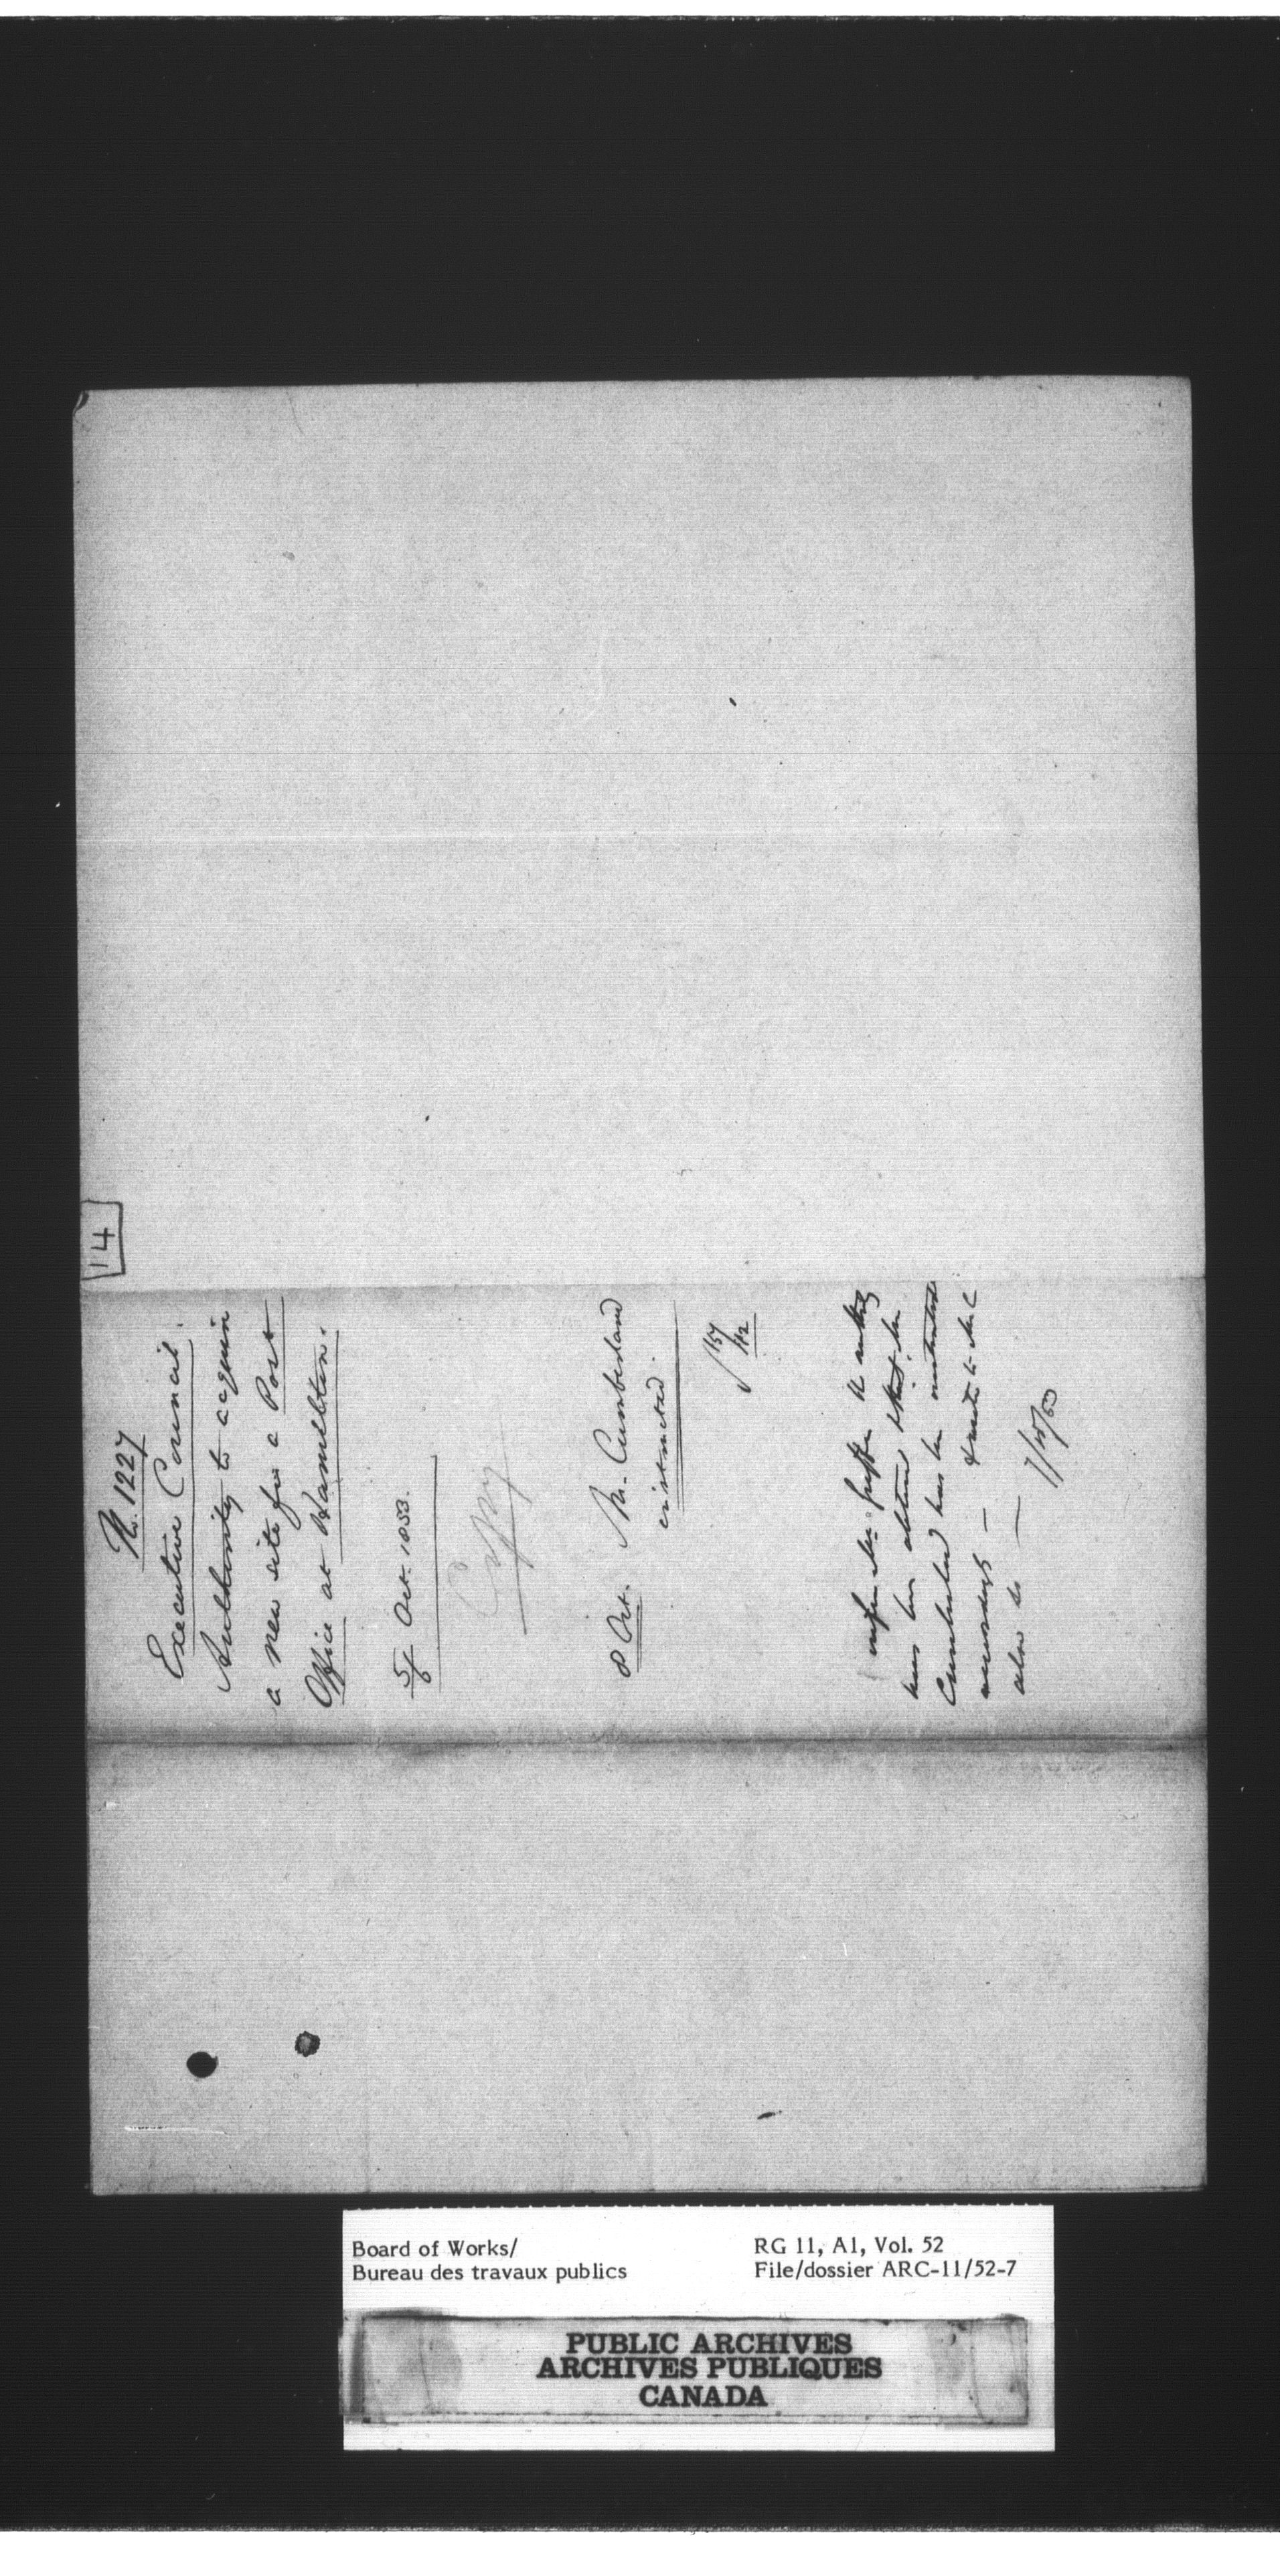 14
No. 1227
Executive Council.
Authority to acquire
a new site for a Post
Office at Hamilton.
5/6 Oct. 1853.
Copy
8 Oct. Mr. Cumberland
instructed.
inform Mr.
has been obtained & that Mr.
Cumberland has been instructed
accordingly — & write to Mr C
also to —
Board of Works/
Bureau des travaux publics
RG 11, A1, Vol. 52
File/dossier ARC-11/52-7
PUBLIC ARCHIVES
ARCHIVES PUBLIQUES
CANADA